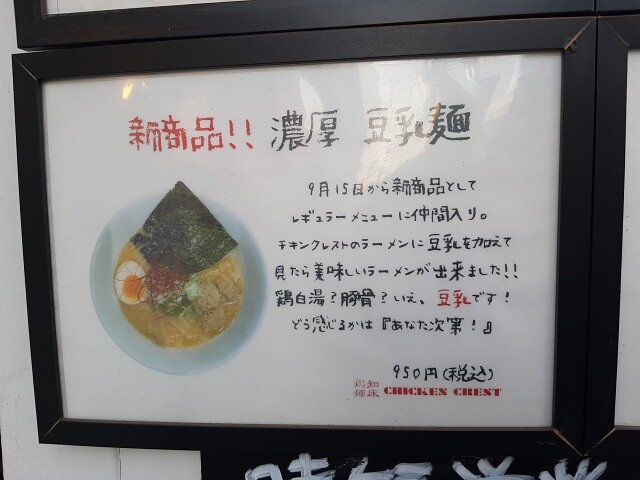 新商品!! 濃厚 豆乳麺
9月15日から新商品として
レギュラーメニューに仲間入り。
チキンクレストのラーメンに豆乳を加えて
見たら美味しいラーメンが出来ました!!
鶏白湯?豚骨?いえ、豆乳です!
どう感じるかは『あなた次第!』
950円(税込)
CHICKEN CREST